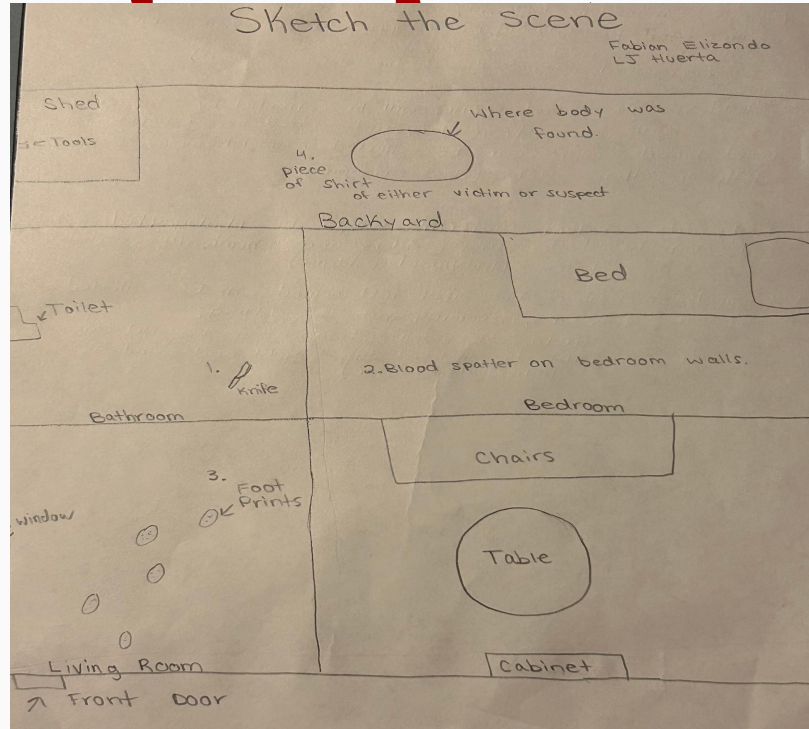 Sketch the Scene
Fabian Elizondo
LJ Huerta
Shed
Tools
Where body was
found.
4.
piece
of shirt
of either victim or suspect
Backyard
Bed
Toilet
1.
Knife
2. Blood spatter on bedroom walls.
Bathroom
Bedroom
Chairs
3.
Foot
Prints
window
Table
Living Room
Cabinet
Front Door